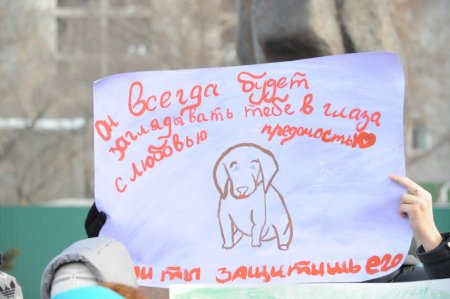 Он всегда будет
заглядывать тебе в глаза
с любовью преданостью
ты защитишь его